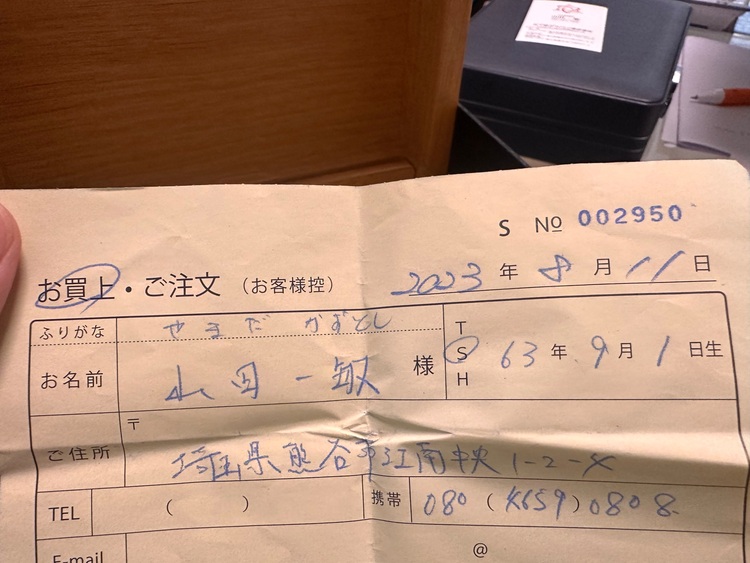 S № 002950
お買上・ご注文 (お客様控) 2023年 8月 11日
ふりがな やまだ かずとし
お名前 山田 一敏 様
T
S 63年 9月 1日生
H
〒
ご住所 埼玉県熊谷市江南中央1-2-
TEL ( ) 携帯 080 ( ) 0808
E-mail @